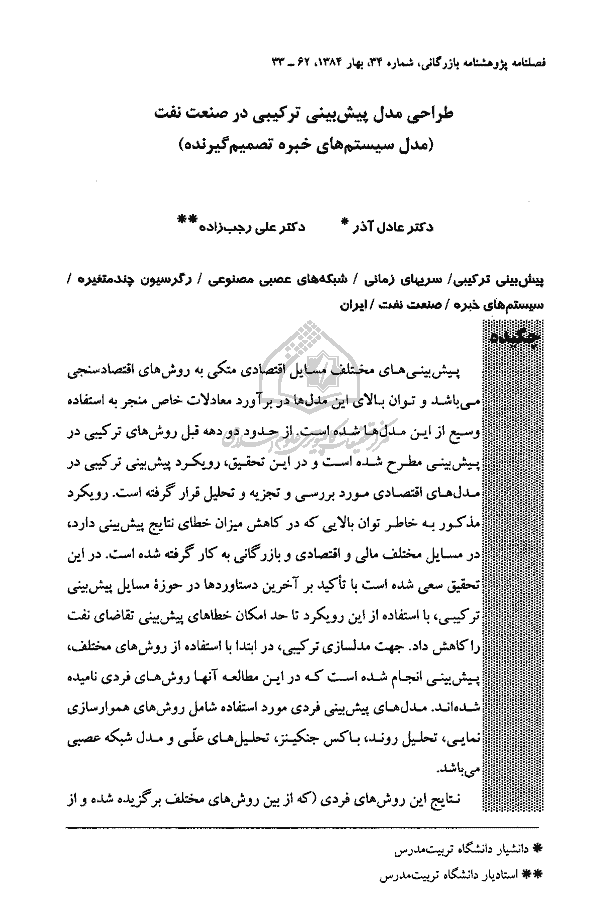 فصلنامه پژوهشنامه بازرگانی، شماره ۳۴، بهار ۱۳۸۴، ۶۲ ـ ۳۳
طراحی مدل پیش‌بینی ترکیبی در صنعت نفت
(مدل سیستم‌های خبره تصمیم‌گیرنده)
دکتر عادل آذر * دکتر علی رجب‌زاده **
پیش‌بینی ترکیبی/ سریهای زمانی / شبکه‌های عصبی مصنوعی / رگرسیون چندمتغیره /
سیستم‌های خبره / صنعت نفت / ایران
چکیده
پیش‌بینی‌های مختلف مسایل اقتصادی متکی به روش‌های اقتصادسنجی
می‌باشد و توان بالای این مدل‌ها در برآورد معادلات خاص منجر به استفاده
وسیع از این مدل‌ها شده است. از حدود دو دهه قبل روش‌های ترکیبی در
پیش‌بینی مطرح شده است و در این تحقیق، رویکرد پیش‌بینی ترکیبی در
مدل‌های اقتصادی مورد بررسی و تجزیه و تحلیل قرار گرفته است. رویکرد
مذکور به خاطر توان بالایی که در کاهش میزان خطای نتایج پیش‌بینی دارد،
در مسایل مختلف مالی و اقتصادی و بازرگانی به کار گرفته شده است. در این
تحقیق سعی شده است با تأکید بر آخرین دستاوردها در حوزهٔ مسایل پیش‌بینی
ترکیبی، با استفاده از این رویکرد تا حد امکان خطاهای پیش‌بینی تقاضای نفت
را کاهش داد. جهت مدلسازی ترکیبی، در ابتدا با استفاده از روش‌های مختلف،
پیش‌بینی انجام شده است که در این مطالعه آنها روش‌های فردی نامیده
شده‌اند. مدل‌های پیش‌بینی فردی مورد استفاده شامل روش‌های هموارسازی
نمایی، تحلیل روند، باکس جنکینز، تحلیل‌های علّی و مدل شبکه عصبی
می‌باشد.
نتایج این روش‌های فردی (که از بین روش‌های مختلف برگزیده شده و از
* دانشیار دانشگاه تربیت‌مدرس
** استادیار دانشگاه تربیت‌مدرس